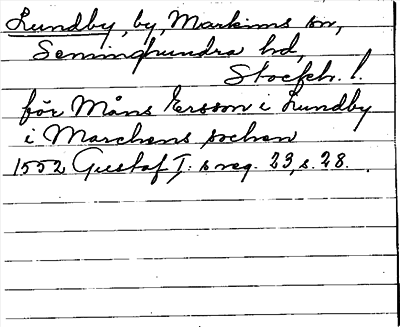 Lundby, by, Markims sn,
Seminghundra hd,
Stockh. l.
för Måns Ersson i Lundby
i Marchens sochen
1552 Gustaf I:s reg. 23, s. 28.